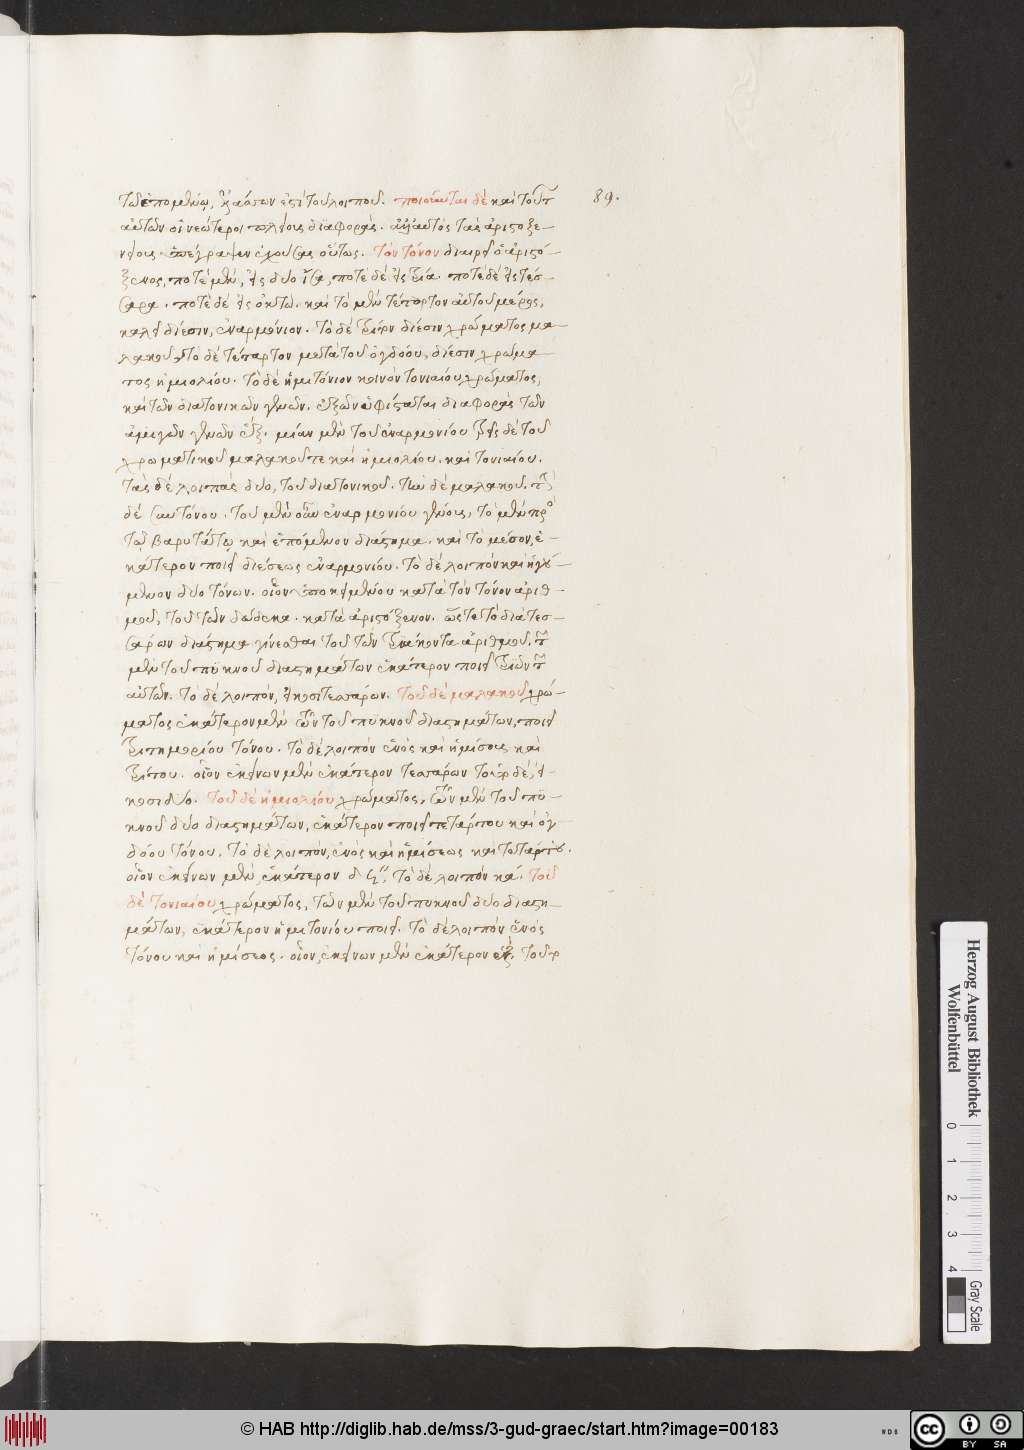 τῷ ἑπομένῳ, ἔλασσον ἐστὶ τοῦ λοιποῦ. ποιοῦνται δὲ καὶ τούτ 89.
αὐτῶν οἱ νεώτεροι πλείους διαφοράς. αὐτὸς τὰς ἀριστοξε-
νείους ἐπέγραψεν ἐχούσας οὕτως. τὸν τόνον διαιρεῖ ὁ ἀριστό-
ξενος, ποτὲ μὲν, εἰς δύο ἴσα, ποτὲ δὲ εἰς τρία. ποτὲ δὲ εἰς τέσ-
σαρα. ποτὲ δὲ εἰς ὀκτώ. καὶ τὸ μὲν τέταρτον αὐτοῦ μέρος,
καλεῖ δίεσιν, ἐναρμόνιον. τὸ δὲ τρίτον δίεσιν χρώματος μα-
λακοῦ, τὸ δὲ τέταρτον μετὰ τοῦ ὀγδόου, δίεσιν χρώμα-
τος ἡμιολίου. τὸ δὲ ἡμιτόνιον κοινὸν τονιαίου χρώματος,
καὶ τῶν διατονικῶν γενῶν. ἐξ ὧν ὑφίσταται διαφορὰς τῶν
ἀμιγῶν γενῶν ἕξ. μίαν μὲν τοῦ ἐναρμονίου τρεῖς δὲ τοῦ
χρωματικοῦ μαλακοῦ τε καὶ ἡμιολίου. καὶ τονιαίου.
τὰς δὲ λοιπὰς δύο, τοῦ διατονικοῦ. τὴν δὲ μαλακοῦ. τὴν
δὲ συντόνου. τοῦ μὲν οὖν ἐναρμονίου γένους, τὸ μὲν πρὸς
τῷ βαρυτάτῳ καὶ ἑπόμενον διάστημα. καὶ τὸ μέσον, ἑ-
κάτερον ποιεῖ διέσεως ἐναρμονίου. τὸ δὲ λοιπὸν καὶ ἡγού-
μενον δύο τόνων. οἷον ὑποκειμένου κατὰ τὸν τόνον ἀριθ-
μοῦ, τοῦ τῶν δώδεκα. κατὰ ἀριστόξενον. ὥστε τὸ διὰ τεσ-
σάρων διάστημα γίνεσθαι τοῦ τῶν τριάκοντα ἀριθμοῦ. τῶν
μὲν τοῦ πυκνοῦ διαστημάτων ἑκάτερον ποιεῖ τριῶν τῶν
αὐτῶν. τὸ δὲ λοιπὸν, εἰκοσιτεσσάρων. τοῦ δὲ μαλακοῦ χρώ-
ματος ἑκάτερον μὲν τῶν τοῦ πυκνοῦ διαστημάτων, ποιεῖ
τριτημορίου τόνου. τὸ δὲ λοιπὸν ἑνὸς καὶ ἡμίσους καὶ
τρίτου. οἷον ἐκείνων μὲν ἑκάτερον τεσσάρων τοῦτο δὲ, εἰ-
κοσιδύο. τοῦ δὲ ἡμιολίου χρώματος, τῶν μὲν τοῦ πυ-
κνοῦ δύο διαστημάτων, ἑκάτερον ποιεῖ τετάρτου καὶ ὀγ-
δόου τόνου. τὸ δὲ λοιπὸν, ἑνὸς καὶ ἡμίσεως καὶ τετάρτου.
οἷον ἐκείνων μὲν, ἑκάτερον δ ϛʹʹ. τὸ δὲ λοιπὸν κά. τοῦ
δὲ τονιαίου χρώματος, τῶν μὲν τοῦ πυκνοῦ δύο διαστη-
μάτων, ἑκάτερον ἡμιτονίου ποιεῖ. τὸ δὲ λοιπὸν ἑνὸς
τόνου καὶ ἡμίσεος. οἷον, ἐκείνων μὲν ἑκάτερον ἕξ. τοῦτο
Herzog August Bibliothek
Wolfenbüttel
0 1 2 3 4
Gray Scale
© HAB http://diglib.hab.de/mss/3-gud-graec/start.htm?image=00183
WDB
cc BY SA